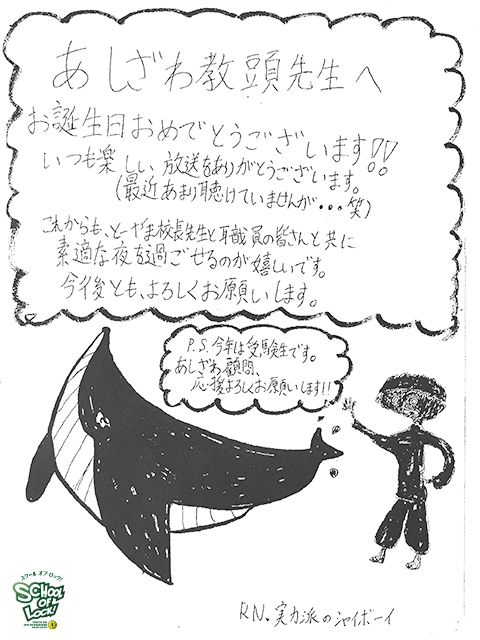 あしざわ教頭先生へ
お誕生日おめでとうございます!!
いつも楽しい放送をありがとうございます。
(最近あまり聴けていませんが・・・笑)
これからも、とーやま校長先生と職員の皆さんと共に
素適な夜を過ごせるのが嬉しいです。
今後とも、よろしくお願いします。
P.S. 今年は受験生です。
あしざわ顧問、
応援よろしくお願いします!!
スクール オブ ロック!
SCHOOL
OF
LOCK!
RN. 実力派のシャイボーイ